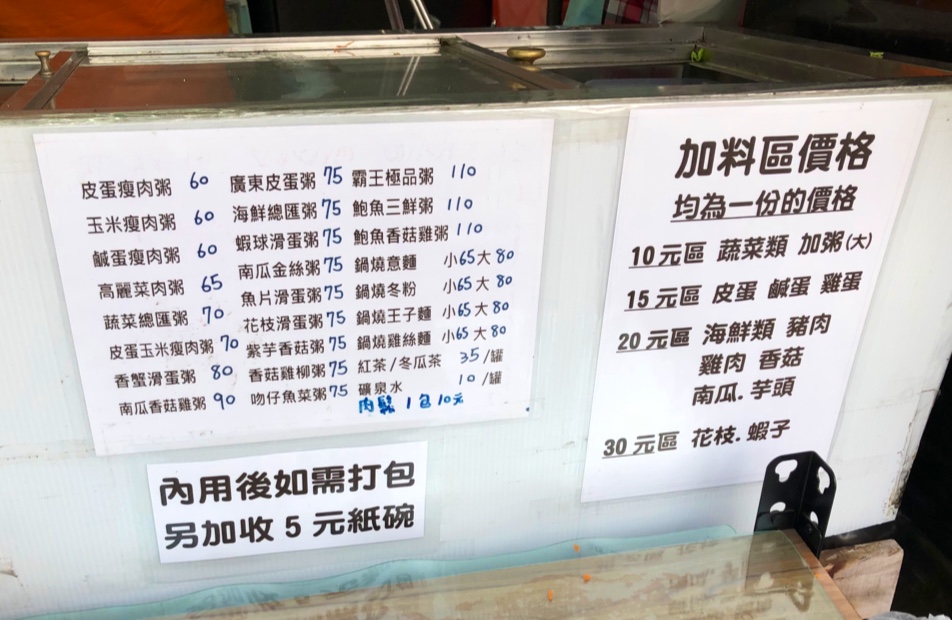 皮蛋瘦肉粥 60 廣東皮蛋粥 75 霸王極品粥 110
玉米瘦肉粥 60 海鮮總匯粥 75 鮑魚三鮮粥 110
鹹蛋瘦肉粥 60 蝦球滑蛋粥 75 鮑魚香菇雞粥 110
高麗菜肉粥 65 南瓜金絲粥 75 鍋燒意麵 小65大80
蔬菜總匯粥 70 魚片滑蛋粥 75 鍋燒冬粉 小65大80
皮蛋玉米瘦肉粥 70 花枝滑蛋粥 75 鍋燒王子麵 小65大80
香蟹滑蛋粥 80 紫芋香菇粥 75 鍋燒雞絲麵 小65大80
南瓜香菇雞粥 90 香菇雞柳粥 75 紅茶/冬瓜茶 35/罐
吻仔魚菜粥 75 礦泉水 10/罐
肉鬆 1包10元
內用後如需打包
另加收 5 元紙碗
加料區價格
均為一份的價格
10元區 蔬菜類 加粥(大)
15元區 皮蛋 鹹蛋 雞蛋
20元區 海鮮類 豬肉
雞肉 香菇
南瓜.芋頭
30元區 花枝.蝦子